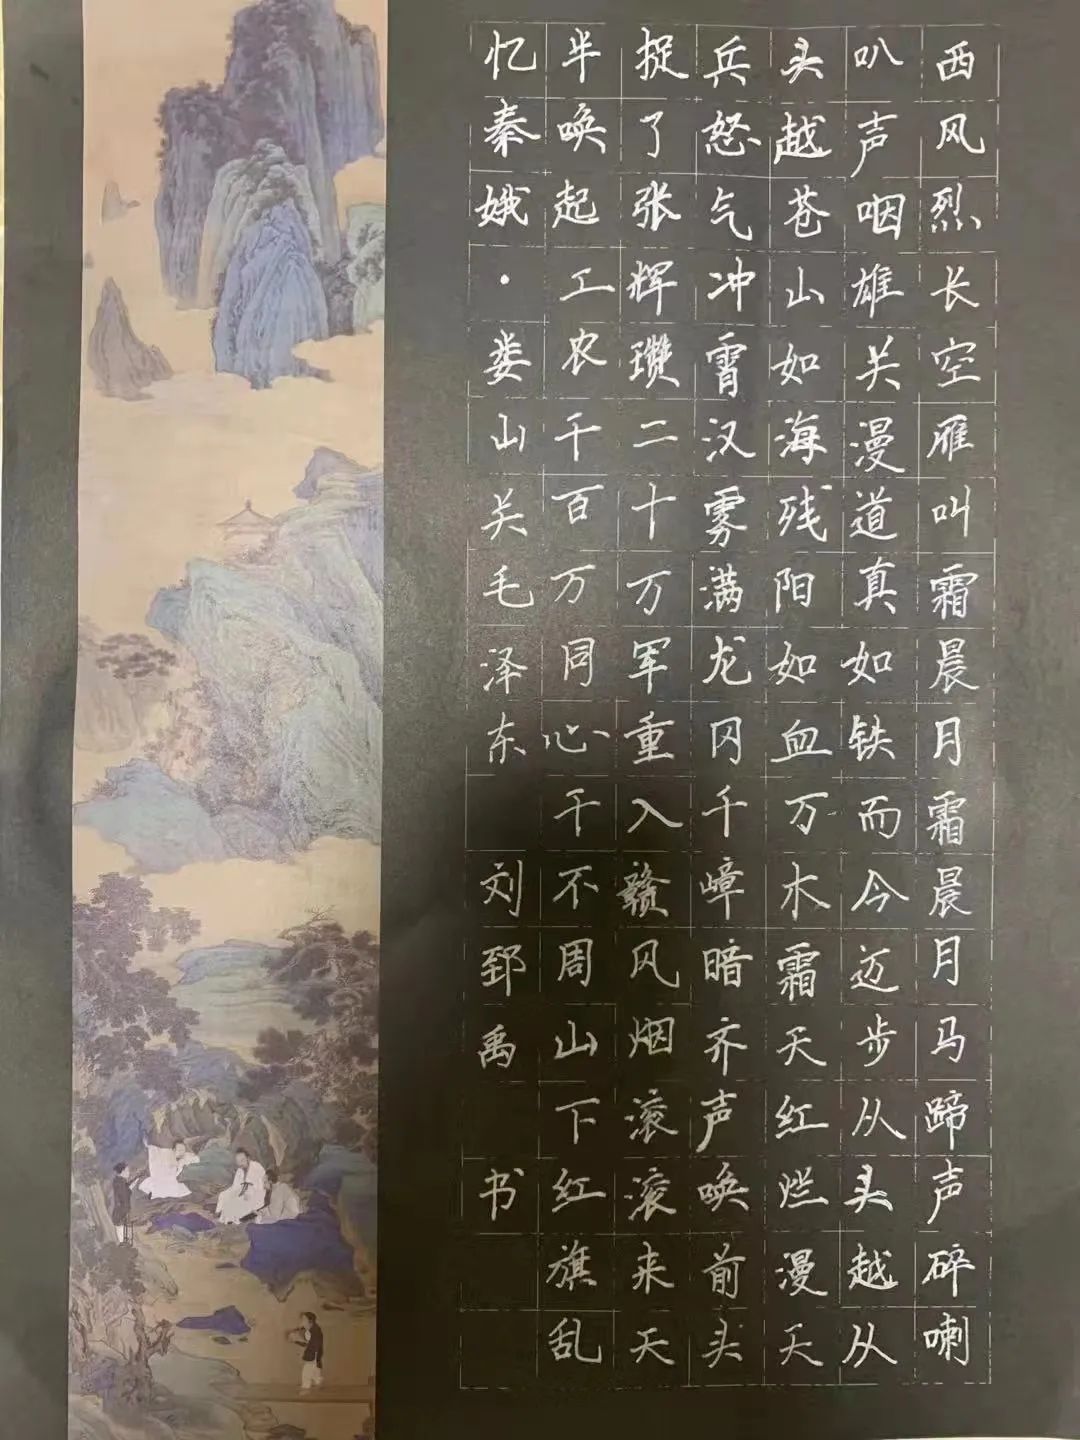 西风烈长空雁叫霜晨月霜晨月马蹄声碎喇
叭声咽雄关漫道真如铁而今迈步从头越从
头越苍山如海残阳如血万木霜天红烂漫天
兵怒气冲霄汉雾满龙冈千嶂暗齐声唤前头
捉了张辉瓒二十万军重入赣风烟滚滚来天
半唤起工农千百万同心干不周山下红旗乱
忆秦娥·娄山关毛泽东 刘郅禹 书